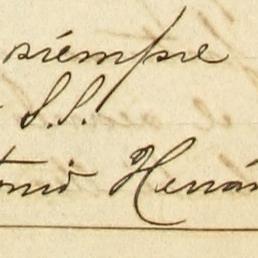 siempre
S.S.
tonio Hernán